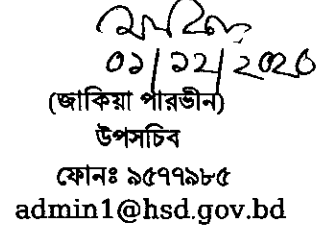 ০১/১২/২০২০
(জাকিয়া পারভীন)
উপসচিব
ফোনঃ ৯৫৭৭৯৮৫
admin1@hsd.gov.bd